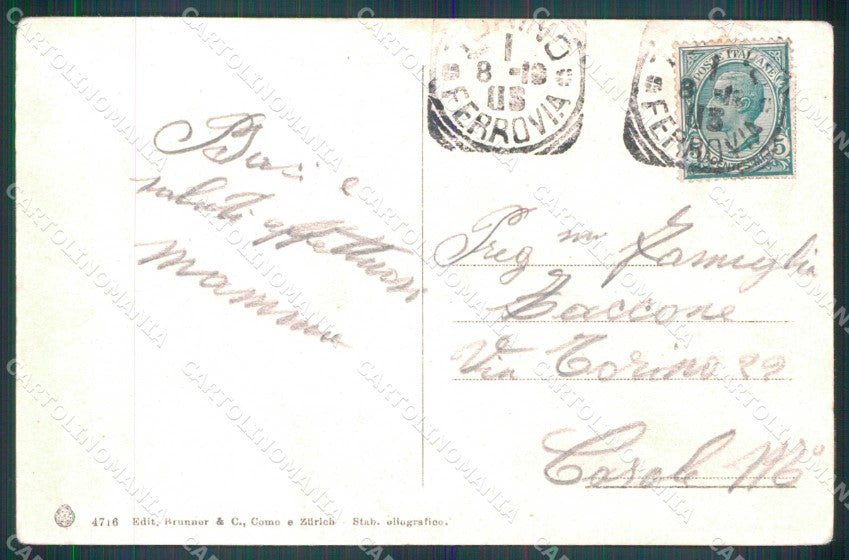 Baci e
saluti affettuosi
mamma
TORINO
1
8-10
FERROVIA
POSTE ITALIANE
5
FERROVIA
Preg ma Famiglia
Zaccone
Via Torino 29
Casale Mto
4716 Edit. Brunner & C., Como e Zürich - Stab. eliografico.
CARTOLINOMANIA